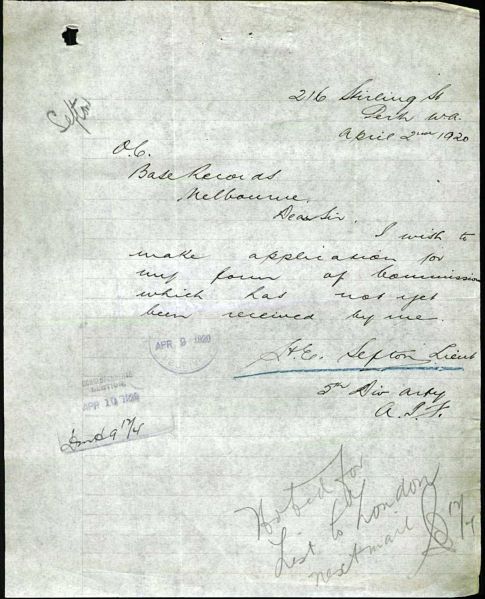 216 Stirling St
Perth W.A.
April 2nd 1920
Sefton
O.C.
Base Records
Melbourne.
Dear Sir.
I wish to
make application for
my form of Commission
which has not yet
been received by me.
H.E. Sefton Lieut
5th Div Arty
A.I.F.
APR 9 1920
APR 10 1920
12/4
Noted for
List to London
next mail
12/4